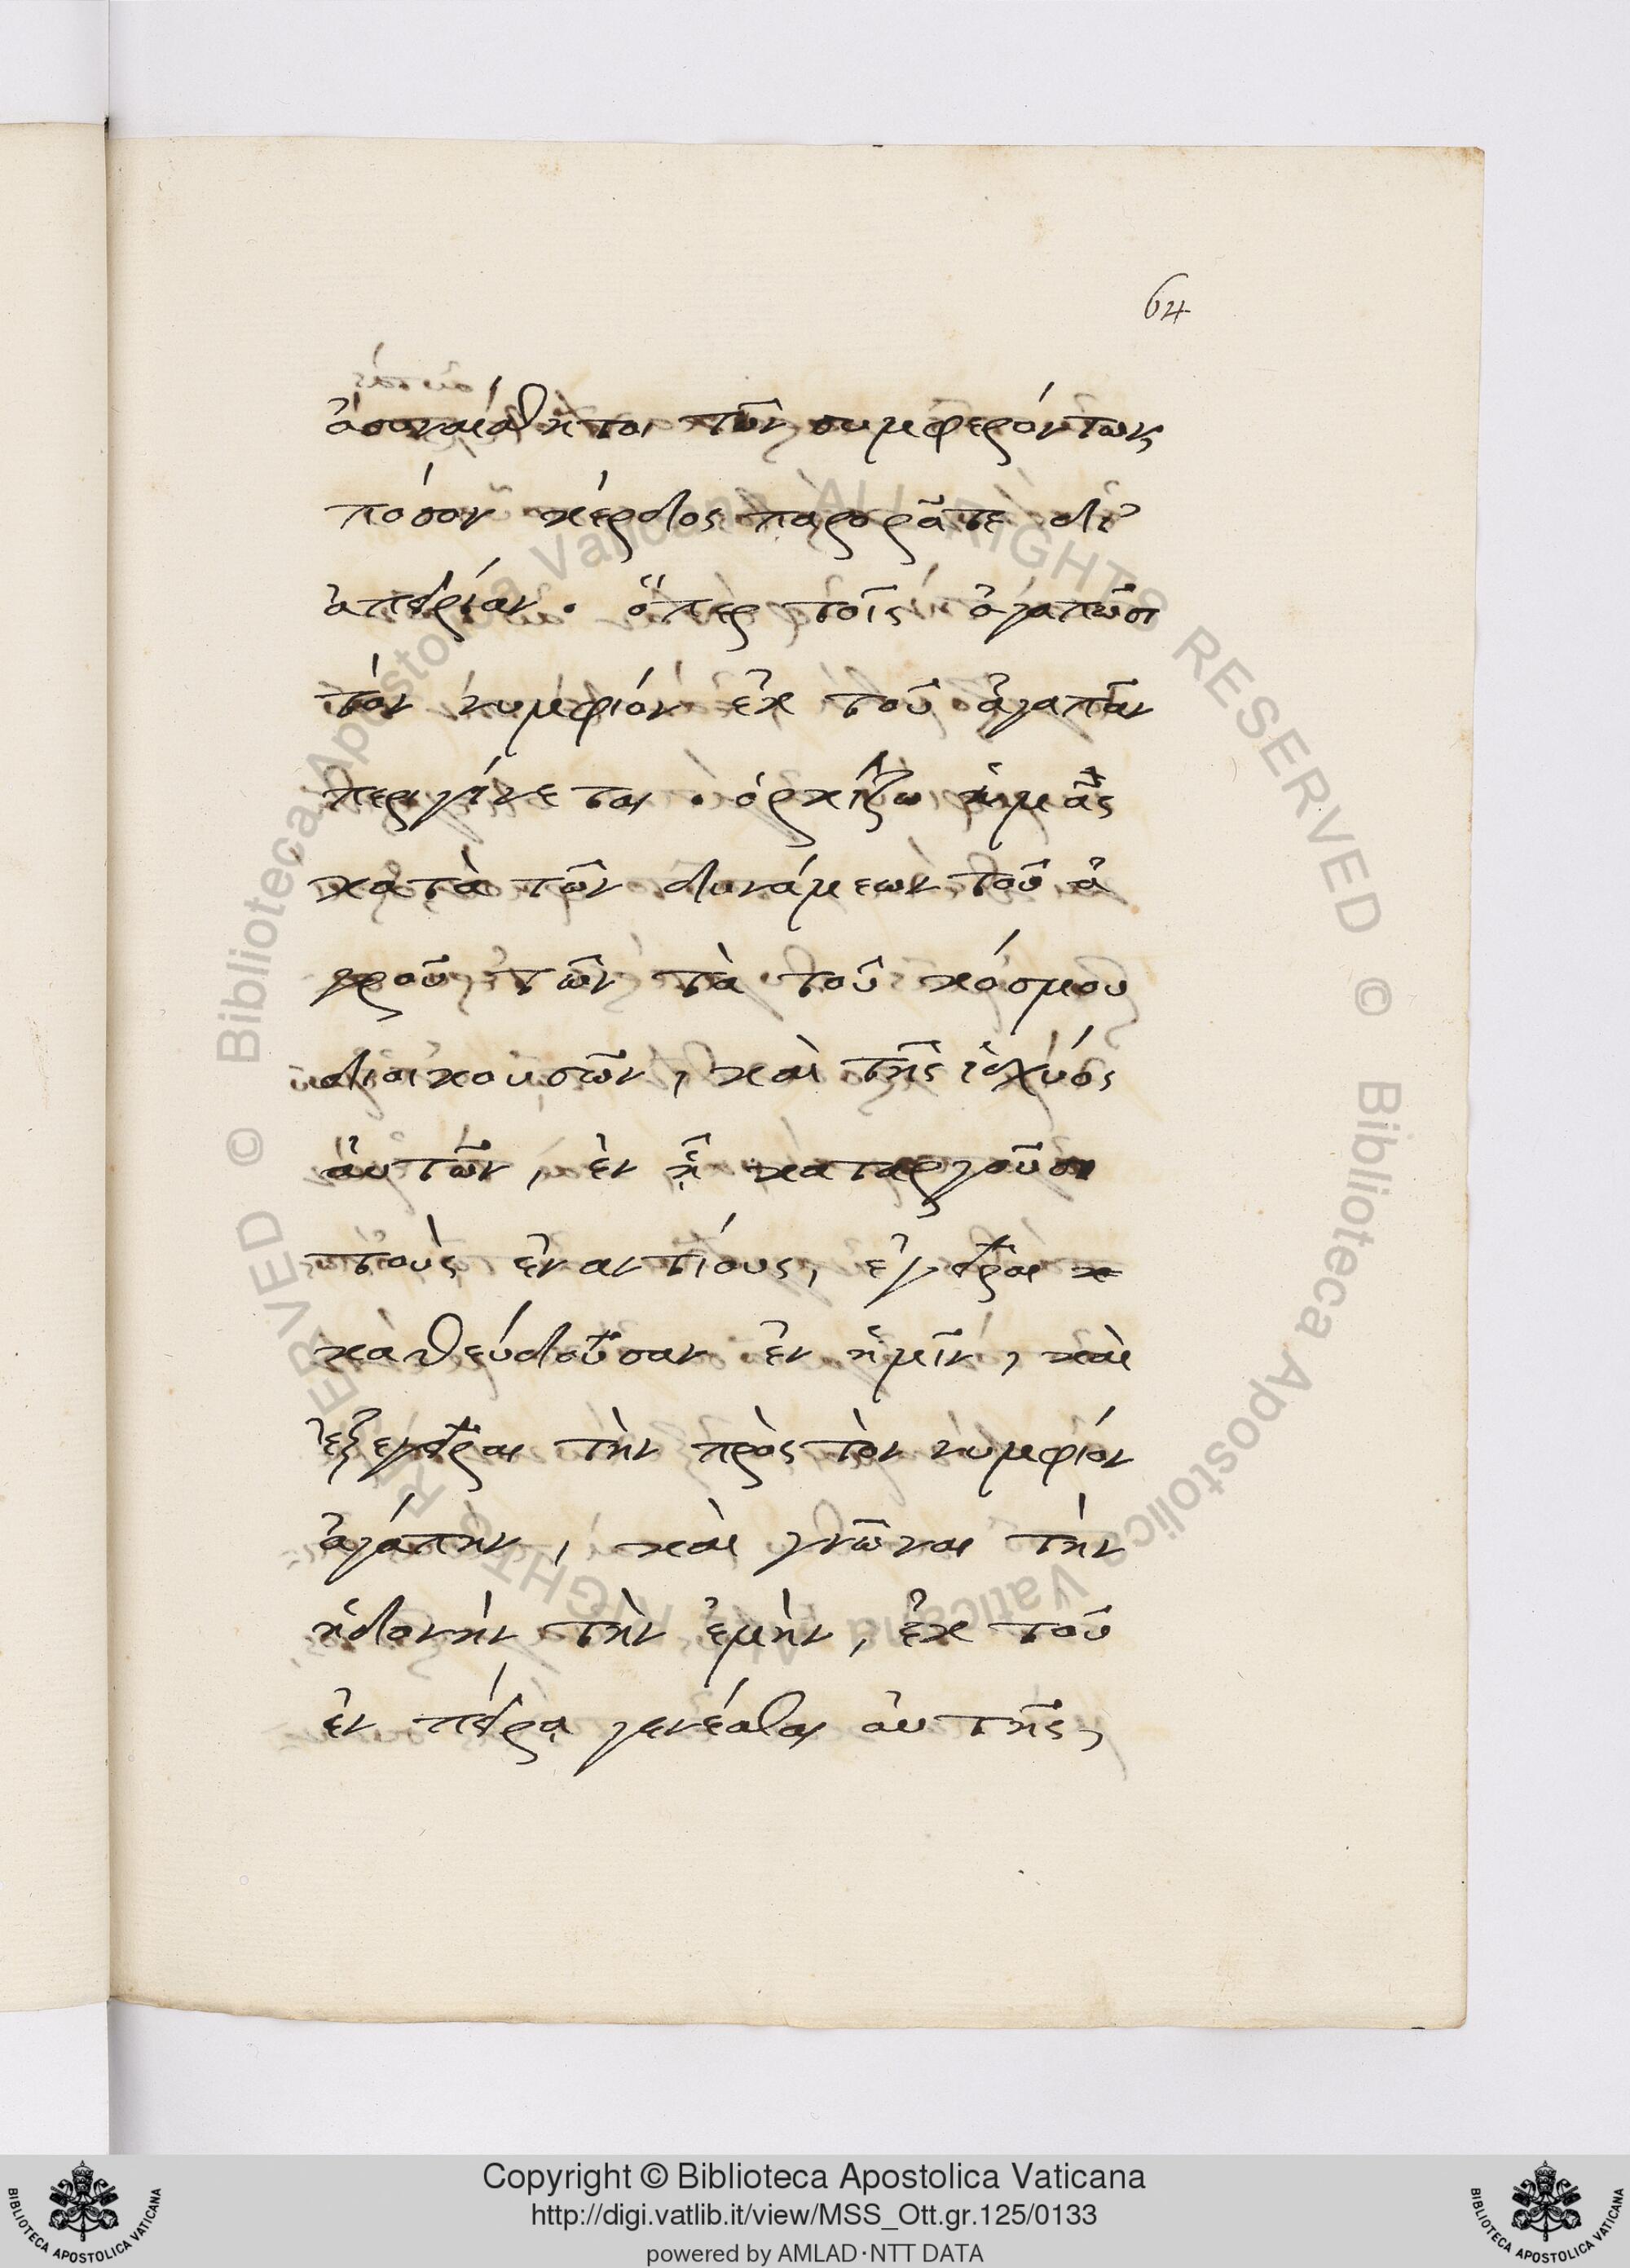 64
ἀσυναίσθητοι τῶν συμφερόντων
πόσον κέρδος παρορᾶτε δι'
ἀπειρίαν. ὅπερ τοῖς ἀγαπῶσι
τὸν νυμφίον ἐκ τοῦ ἀγαπᾶν
περιγίνεται. ὁρκίζω ἡμᾶς
κατὰ τῶν δυνάμεων τοῦ ἀ
γροῦ τῶν τὰ τοῦ κόσμου
διοικουσῶν, καὶ τῆς ἰσχύος
αὐτῶν, ἐν ᾗ καταργοῦσι
τοὺς ἐναντίους, ἐγεῖραι
καθεύδουσαν ἐν ἡμῖν, καὶ
ἐξεγεῖραι τὴν πρὸς τὸν νυμφίον
ἀγάπην, καὶ γνῶναι τὴν
ἡδονὴν τὴν ἐμὴν, ἐκ τοῦ
ἐν πείρᾳ γενέσθαι αὐτῆς,
© Biblioteca Apostolica Vaticana ALL RIGHTS RESERVED © Biblioteca Apostolica Vaticana ALL RIGHTS RESERVED
Copyright © Biblioteca Apostolica Vaticana
http://digi.vatlib.it/view/MSS_Ott.gr.125/0133
powered by AMLAD·NTT DATA
BIBLIOTECA APOSTOLICA VATICANA
BIBLIOTECA APOSTOLICA VATICANA